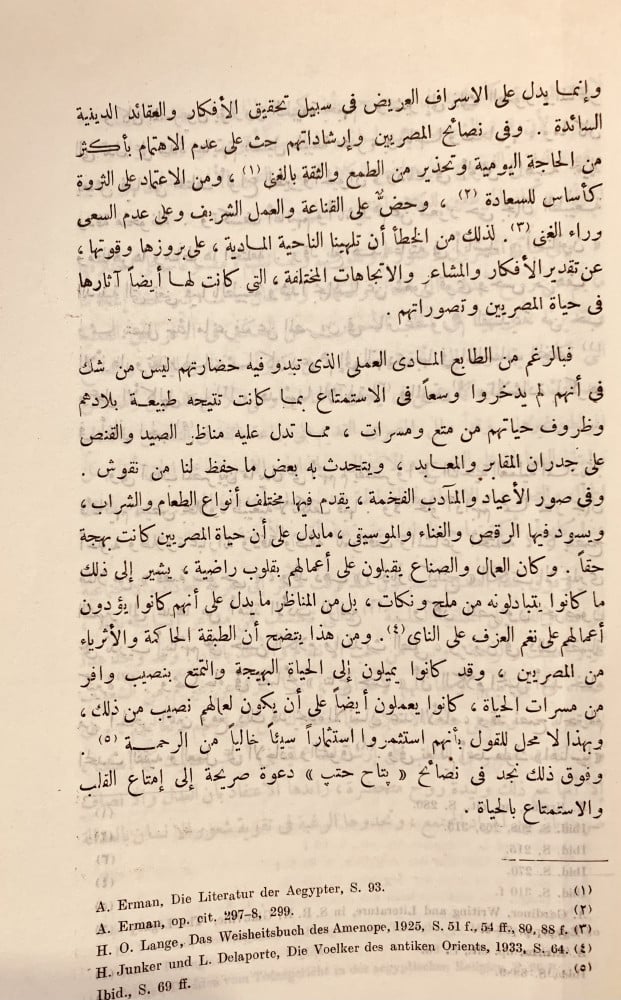 وإنما يدل على الاسراف العريض فى سبيل تحقيق الأفكار والعقائد الدينية
السائدة . وفى نصائح المصريين وإرشاداتهم حث على عدم الاهتمام بأكثر
من الحاجة اليومية وتحذير من الطمع والثقة بالغنى (١) ، ومن الاعتماد على الثروة
كأساس للسعادة (٢) ، وحضٌّ على القناعة والعمل الشريف وعلى عدم السعى
وراء الغنى (٣). لذلك من الخطأ أن تلهينا الناحية المادية ، على بروزها وقوتها ،
عن تقدير الأفكار والمشاعر والاتجاهات المختلفة ، التى كانت لها أيضاً آثارها
فى حياة المصريين وتصوراتهم .
فبالرغم من الطابع المادى العملى الذى تبدو فيه حضارتهم ليس من شك
فى أنهم لم يدخروا وسعاً فى الاستمتاع بما كانت تتيحه طبيعة بلادهم
وظروف حياتهم من متع ومسرات ، مما تدل عليه مناظر الصيد والقنص
على جدران المقابر والمعابد ، ويتحدث به بعض ما حفظ لنا من نقوش .
وفى صور الأعياد والمآدب الفخمة ، يقدم فيها مختلف أنواع الطعام والشراب ،
ويسود فيها الرقص والغناء والموسيقى ، مايدل على أن حياة المصريين كانت بهجة
حقاً . وكان العمال والصناع يقبلون على أعمالهم بقلوب راضية ، يشير إلى ذلك
ما كانوا يتبادلونه من ملح ونكات ، بل من المناظر ما يدل على أنهم كانوا يؤدون
أعمالهم على نغم العزف على الناى (٤). ومن هذا يتضح أن الطبقة الحاكمة والأثرياء
من المصريين ، وقد كانوا يميلون إلى الحياة البهيجة والتمتع بنصيب وافر
من مسرات الحياة ، كانوا يعملون أيضاً على أن يكون لعمالهم نصيب من ذلك ،
وبهذا لا محل للقول بأنهم استثمروا استثماراً سيئاً خالياً من الرحمة (٥) .
وفوق ذلك نجد فى نصائح « پتاح حتپ » دعوة صريحة إلى إمتاع القلب
والاستمتاع بالحياة .
A. Erman, Die Literatur der Aegypter, S. 93. (١)
A. Erman, op. cit. 297–8, 299. (٢)
H. O. Lange, Das Weisheitsbuch des Amenope, 1925, S. 51 f., 54 ff., 80, 88 f. (٣)
H. Junker und L. Delaporte, Die Voelker des antiken Orients, 1933, S. 64. (٤)
Ibid., S. 69 ff. (٥)